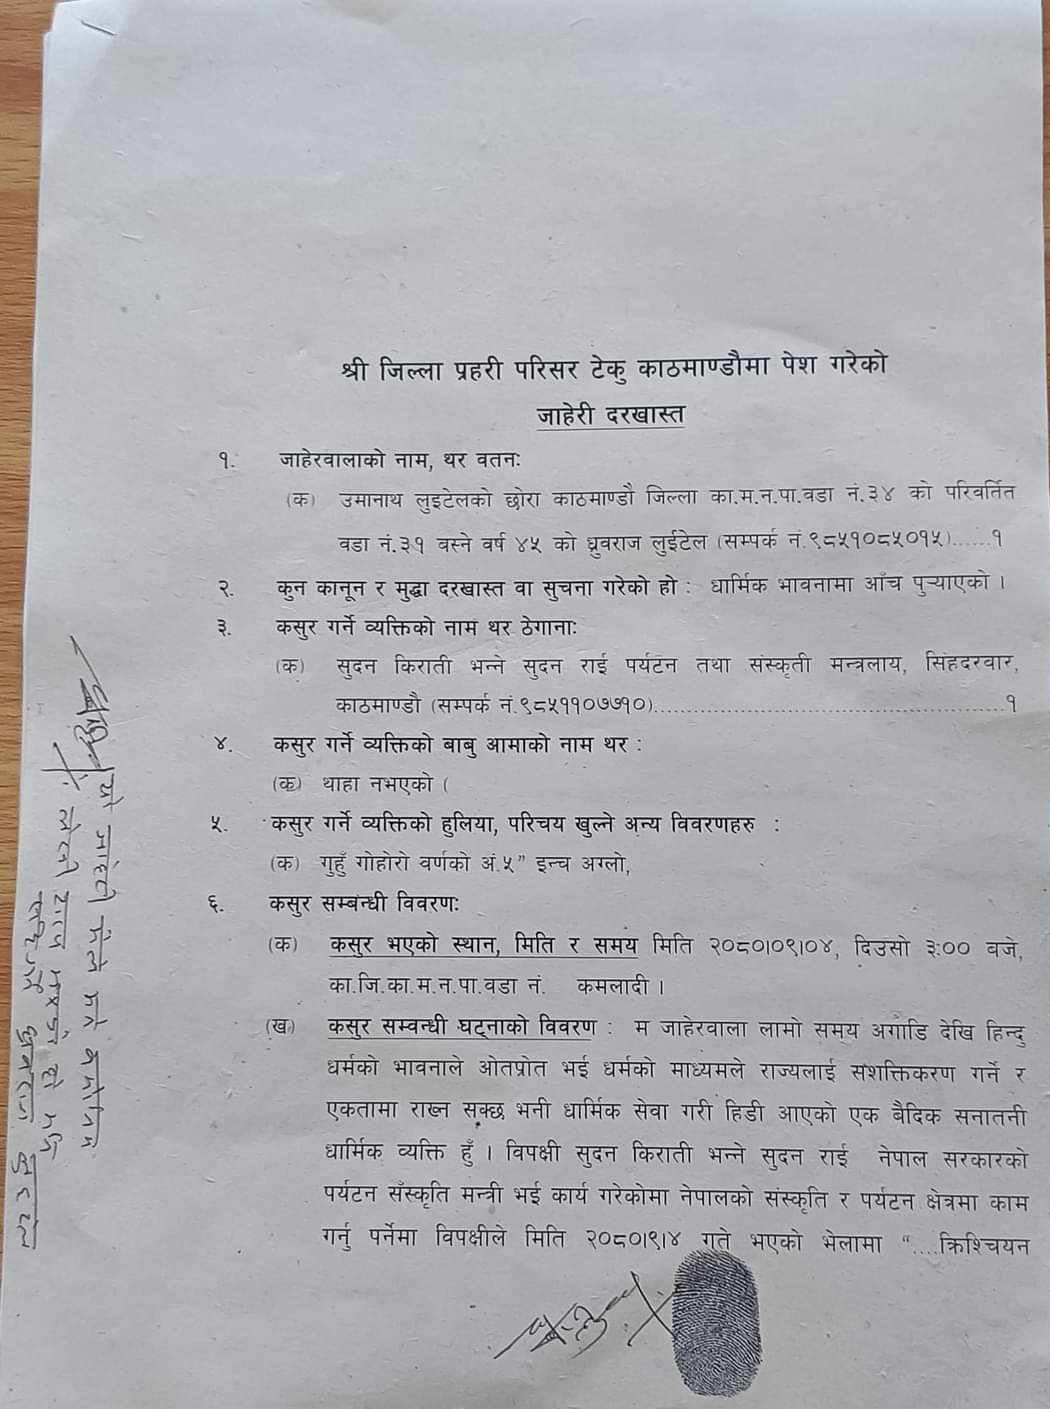 श्री जिल्ला प्रहरी परिसर टेकु काठमाण्डौमा पेश गरेको
जाहेरी दरखास्त
१. जाहेरवालाको नाम, थर वतनः
(क) उमानाथ लुइटेलको छोरा काठमाण्डौ जिल्ला का.म.न.पा.वडा नं.३४ को परिवर्तित
वडा नं.३१ बस्ने वर्ष ४५ को ध्रुवराज लुईटेल (सम्पर्क नं.९८५१०८५०१५)......१
२. कुन कानून र मुद्धा दरखास्त वा सुचना गरेको हो : धार्मिक भावनामा आँच पुऱ्याएको ।
३. कसुर गर्ने व्यक्तिको नाम थर ठेगानाः
(क) सुदन किराती भन्ने सुदन राई पर्यटन तथा संस्कृती मन्त्रलाय, सिंहदरवार,
काठमाण्डौ (सम्पर्क नं.९८५११०७७१०)....................................................१
४. कसुर गर्ने व्यक्तिको बाबु आमाको नाम थर :
(क) थाहा नभएको (
५. कसुर गर्ने व्यक्तिको हुलिया, परिचय खुल्ने अन्य विवरणहरु :
(क) गुहुँ गोहोरो वर्णको अं.५” इन्च अग्लो,
६. कसुर सम्बन्धी विवरणः
(क) कसुर भएको स्थान, मिति र समय मिति २०८०।०९।०४, दिउसो ३:०० बजे,
का.जि.का.म.न.पा.वडा नं. कमलादी ।
(ख) कसुर सम्वन्धी घट्नाको विवरण : म जाहेरवाला लामो समय अगाडि देखि हिन्दु
धर्मको भावनाले ओतप्रोत भई धर्मको माध्यमले राज्यलाई सशक्तिकरण गर्ने र
एकतामा राख्न सक्छ भनी धार्मिक सेवा गरी हिडी आएको एक बैदिक सनातनी
धार्मिक व्यक्ति हुँ । विपक्षी सुदन किराती भन्ने सुदन राई नेपाल सरकारको
पर्यटन सँस्कृति मन्त्री भई कार्य गरेकोमा नेपालको संस्कृति र पर्यटन क्षेत्रमा काम
गर्नु पर्नेमा विपक्षीले मिति २०८०।९।४ गते भएको भेलामा “....क्रिश्चियन